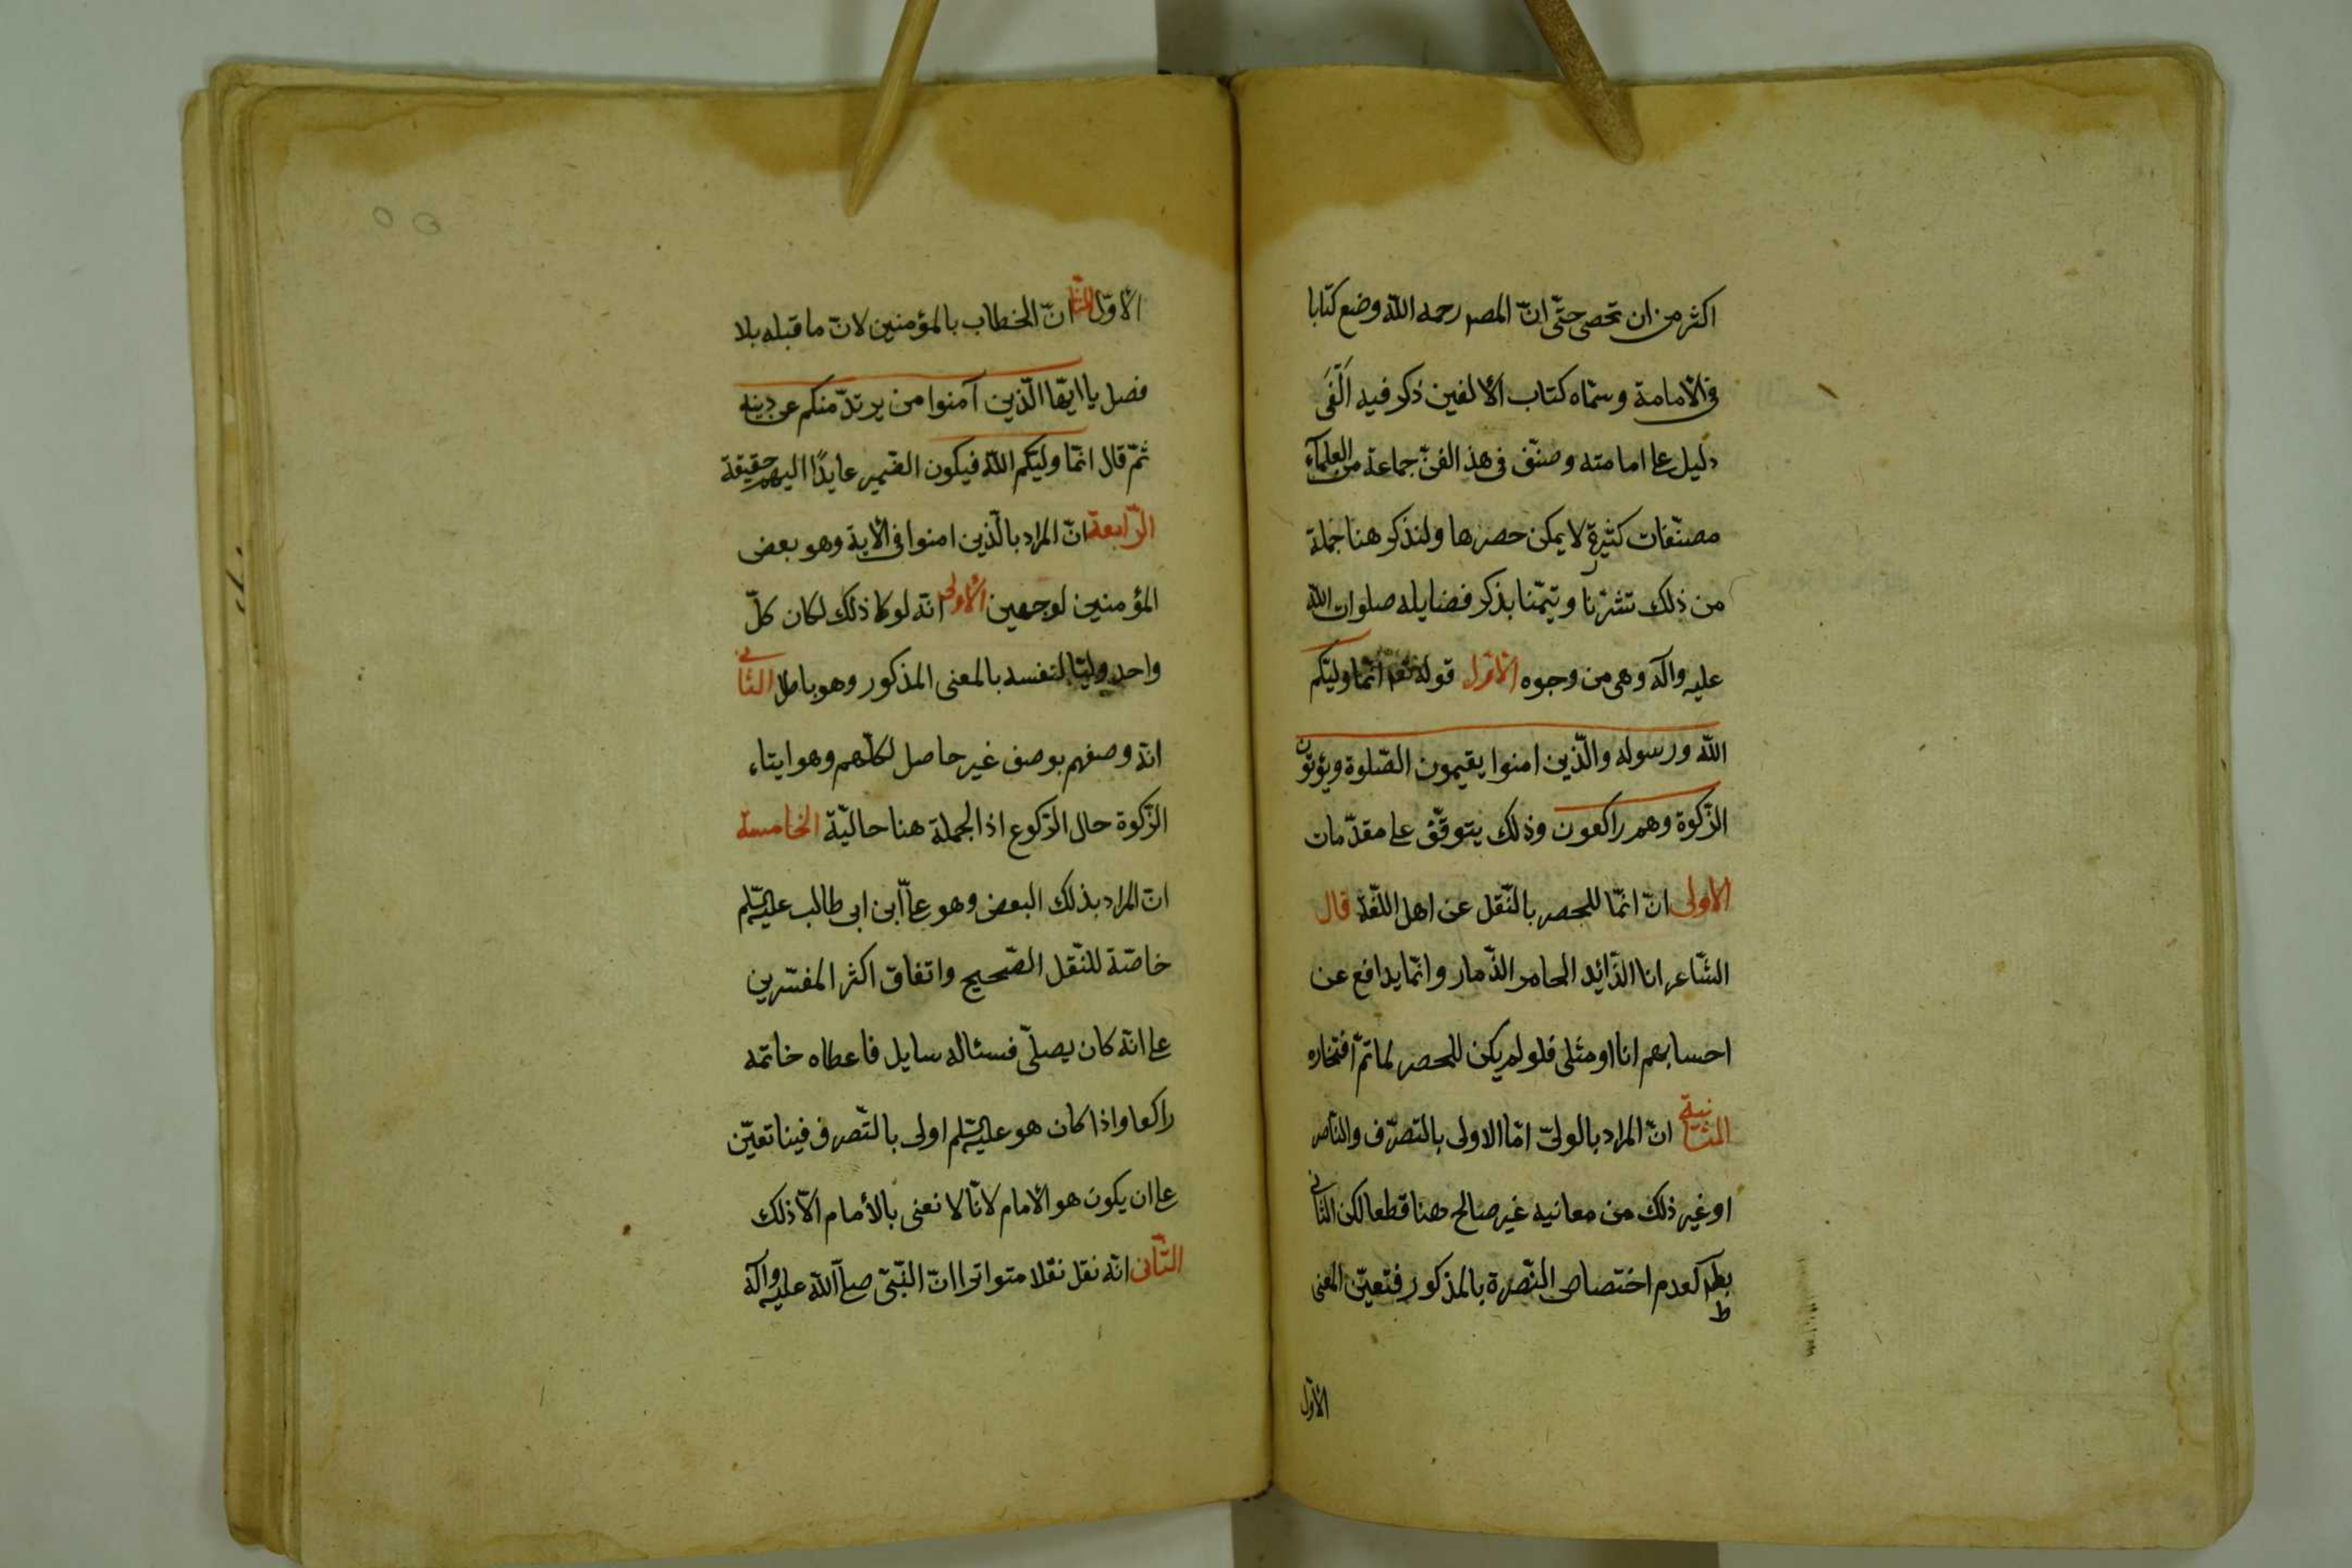 اكثر من ان تحصى حتّى انّ المصم رحمه الله وضع كتابا
فى الامامة وسمّاه كتاب الالفين ذكر فيه الفَى
دليل على امامته وصنّف فى هذ الفنّ جماعة من العلماء
مصنّفات كثيرة لا يمكن حصرها ولنذكر هنا جملة
من ذلك تشرّنا وتيمّنا بذكر فضايله صلوات الله
عليه وآله وهى من وجوه الاوّل قوله تعم انّما وليّكم
الله ورسوله والّذين امنوا يقيمون الصّلوة ويؤتون
الزّكوة وهم راكعون وذلك يتوقّف على مقدّمات
الاولى انّ انّما للحصر بالنّقل عن اهل اللّغة قال
الشّاعر انا الذّائد الحامى الذّمار وانّما يدافع عن
احسابهم انا او مثلى فلو لم يكن للحصر لما تمّ افتخاره
الثّانية انّ المراد بالولىّ امّا الاولى بالتصرّف والناصر
او غير ذلك من معانيه غير صالح هنا قطعا لكن الثّانى
بطم لعدم اختصاص النّصرة بالمذكور فتعيّن المعنى
ط
الاوّل
الاوّل الثّا انّ الخطاب بالمؤمنين لانّ ما قبله بلا
فصل يا ايّها الّذين آمنوا من يرتدّ منكم عن دينه
ثمّ قال انّما وليّكم الله فيكون الضّمير عايدًا اليهم حقيقة
الرّابعة انّ المراد بالّذين امنوا فى الاية وهو بعض
المؤمنين لوجهين الاولى انّه لو كا ذلك لكان كلّ
واحد وليّا لنفسه بالمعنى المذكور وهو باطل الثّانى
انّه وصفهم بوصف غير حاصل لكلّهم وهو ايتاء
الزّكوة حال الرّكوع اذ الجملة هنا حاليّة الخامسة
انّ المراد بذلك البعض وهو على ابن ابى طالب عليه السّلم
خاصّة للنّقل الصّحيح واتفاق اكثر المفسّرين
على انّه كان يصلّى فسئاله سايل فاعطاه خاتمه
راكعا واذا كان هو عليه السّلم اولى بالتّصرف فينا تعيّن
على ان يكون هو الامام لانّا لا نعنى بالأمام الّا ذلك
الثّانى انّه نقل نقلا متواترا انّ النّبىّ صلى الله عليه وآله